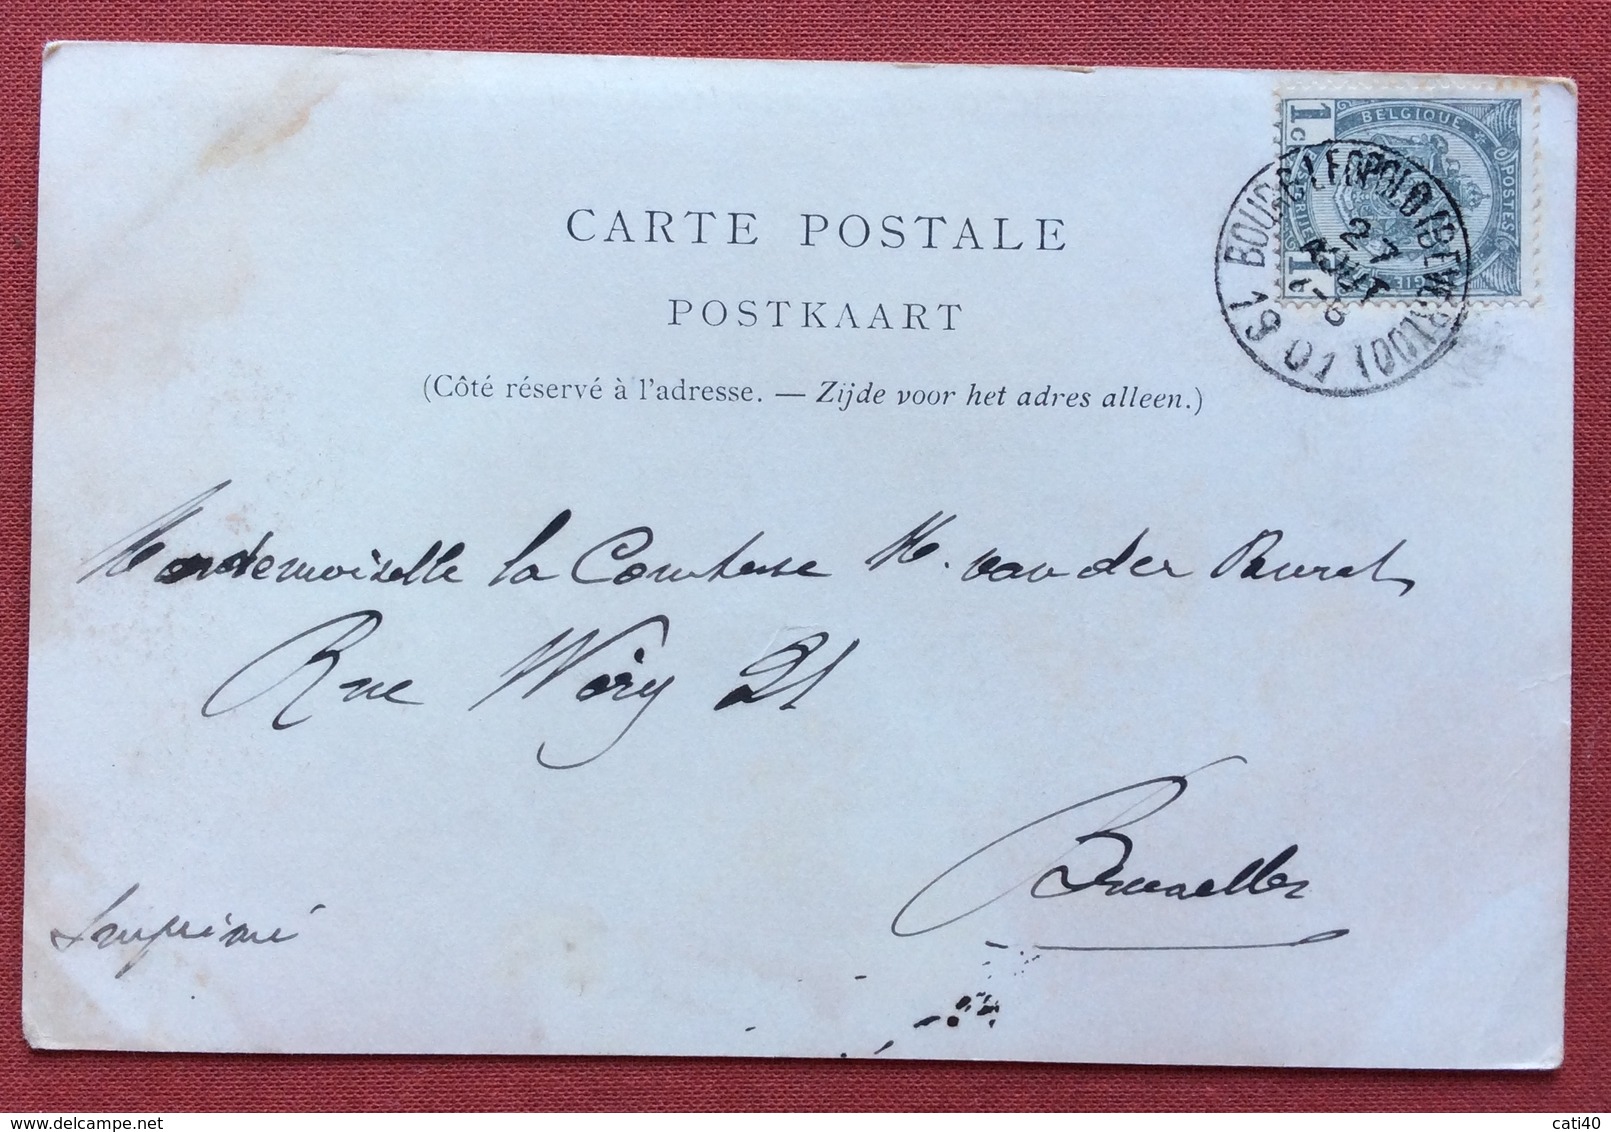 BELGIQUE
POSTES
1c
BOURG-LEOPOLD (BEVERLOO)
27
AOUT
1901
CARTE POSTALE
POSTKAART
(Côté réservé à l'adresse. — Zijde voor het adres alleen.)
Mademoiselle la Comtesse M. van der
Rue Wéry 21
Bruxelles
Imprimé
cati40